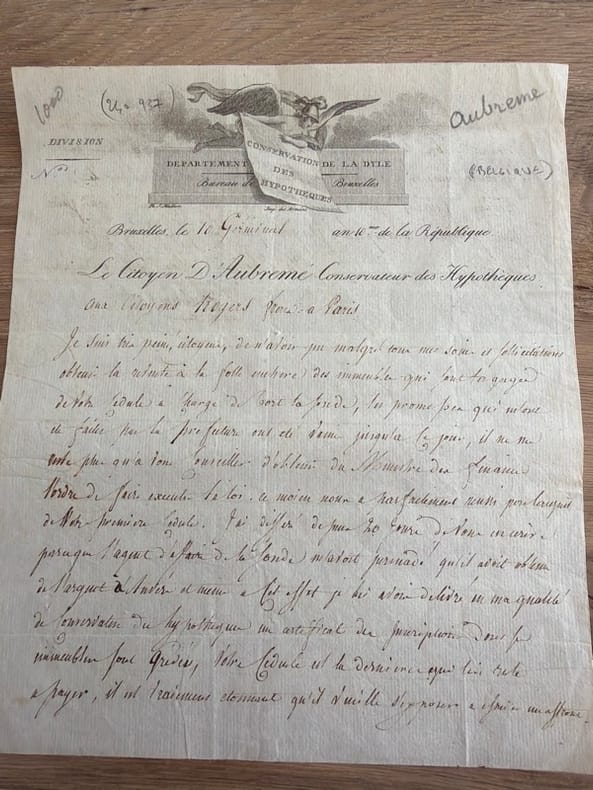 1000
aubremé
DIVISION
N.os
CONSERVATION
DES
HYPOTHÈQUES
DEPARTEMENT DE LA DYLE
Bureau de Bruxelles
(BELGIQUE)
Bruxelles, le 10 Germinal an 10me de la République.
Le Citoyen D'Aubremé Conservateur des Hypothèques
aux Citoyens Rogers frères à Paris
Je suis très peiné, citoyens, de n'avoir pu malgré tous mes soins et sollicitations
obtenir la revente à la folle enchère des immeubles qui sont le gage
de votre Cédule à charge de la Sonde, les promesses qui m'ont
été faites par la préfecture ont été vaines jusqu'à ce jour, il ne me
reste plus qu'à vous conseiller d'obtenir du Ministre des finances
l'ordre de faire exécuter la loi. ce moyen nous a parfaitement réussi pour
de votre première Cédule. J'ai différé depuis 20 jours de vous en écrire
parceque l'agent d'affaire de la Sonde m'avoit persuadé qu'il avoit obtenu
de l'argent à Anvers et même à cet effet je lui avois délivré en ma qualité
de Conservateur des hypothèques un certificat des inscriptions dont les
immeubles sont grevés, Votre Cédule est la dernière qui lui reste
a payer, il est vraiment étonnant qu'il veuille s'exposer a essuier un affront